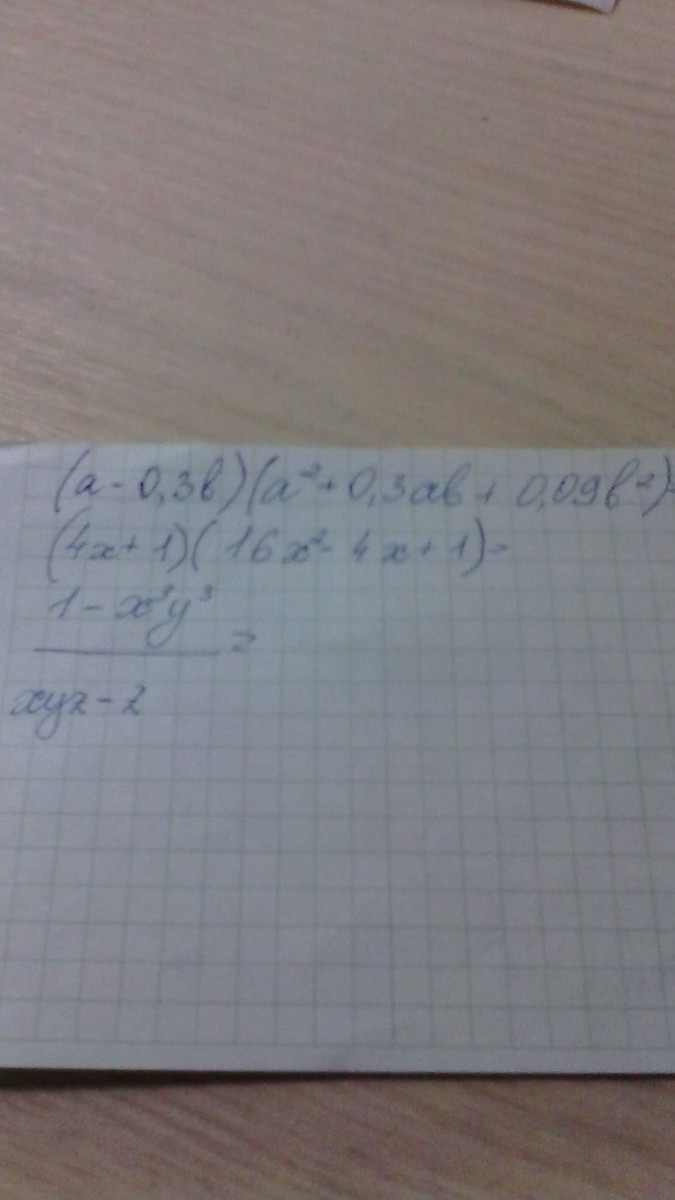 (a - 0,3b)(a² + 0,3ab + 0,09b²) =
(4x + 1)(16x² - 4x + 1) =
1 - x³y³
=
xyz - z